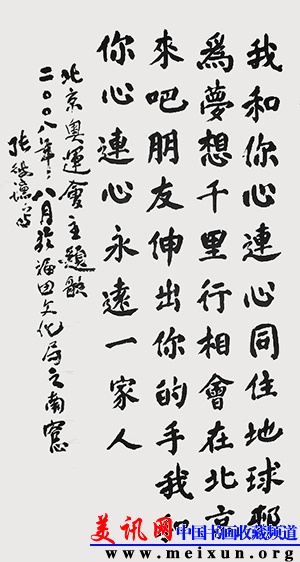 我和你心連心同住地球邨
爲夢想千里行相會在北京
來吧朋友伸出你的手我和
你心連心永遠一家人
北京奧運會主題歌
二〇〇八年八月於福田文化局之南窗
美讯网
中国书画收藏频道
www.meixun.org